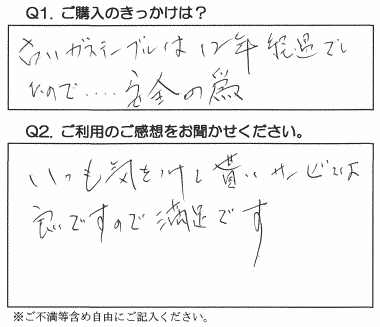 Q1. ご購入のきっかけは？
古いガステーブルは12年経過でし
たので.....安全の為
Q2. ご利用のご感想をお聞かせください。
いつも気をつけて貰いサービスは
良いですので満足です
※ご不満等含め自由にご記入ください。